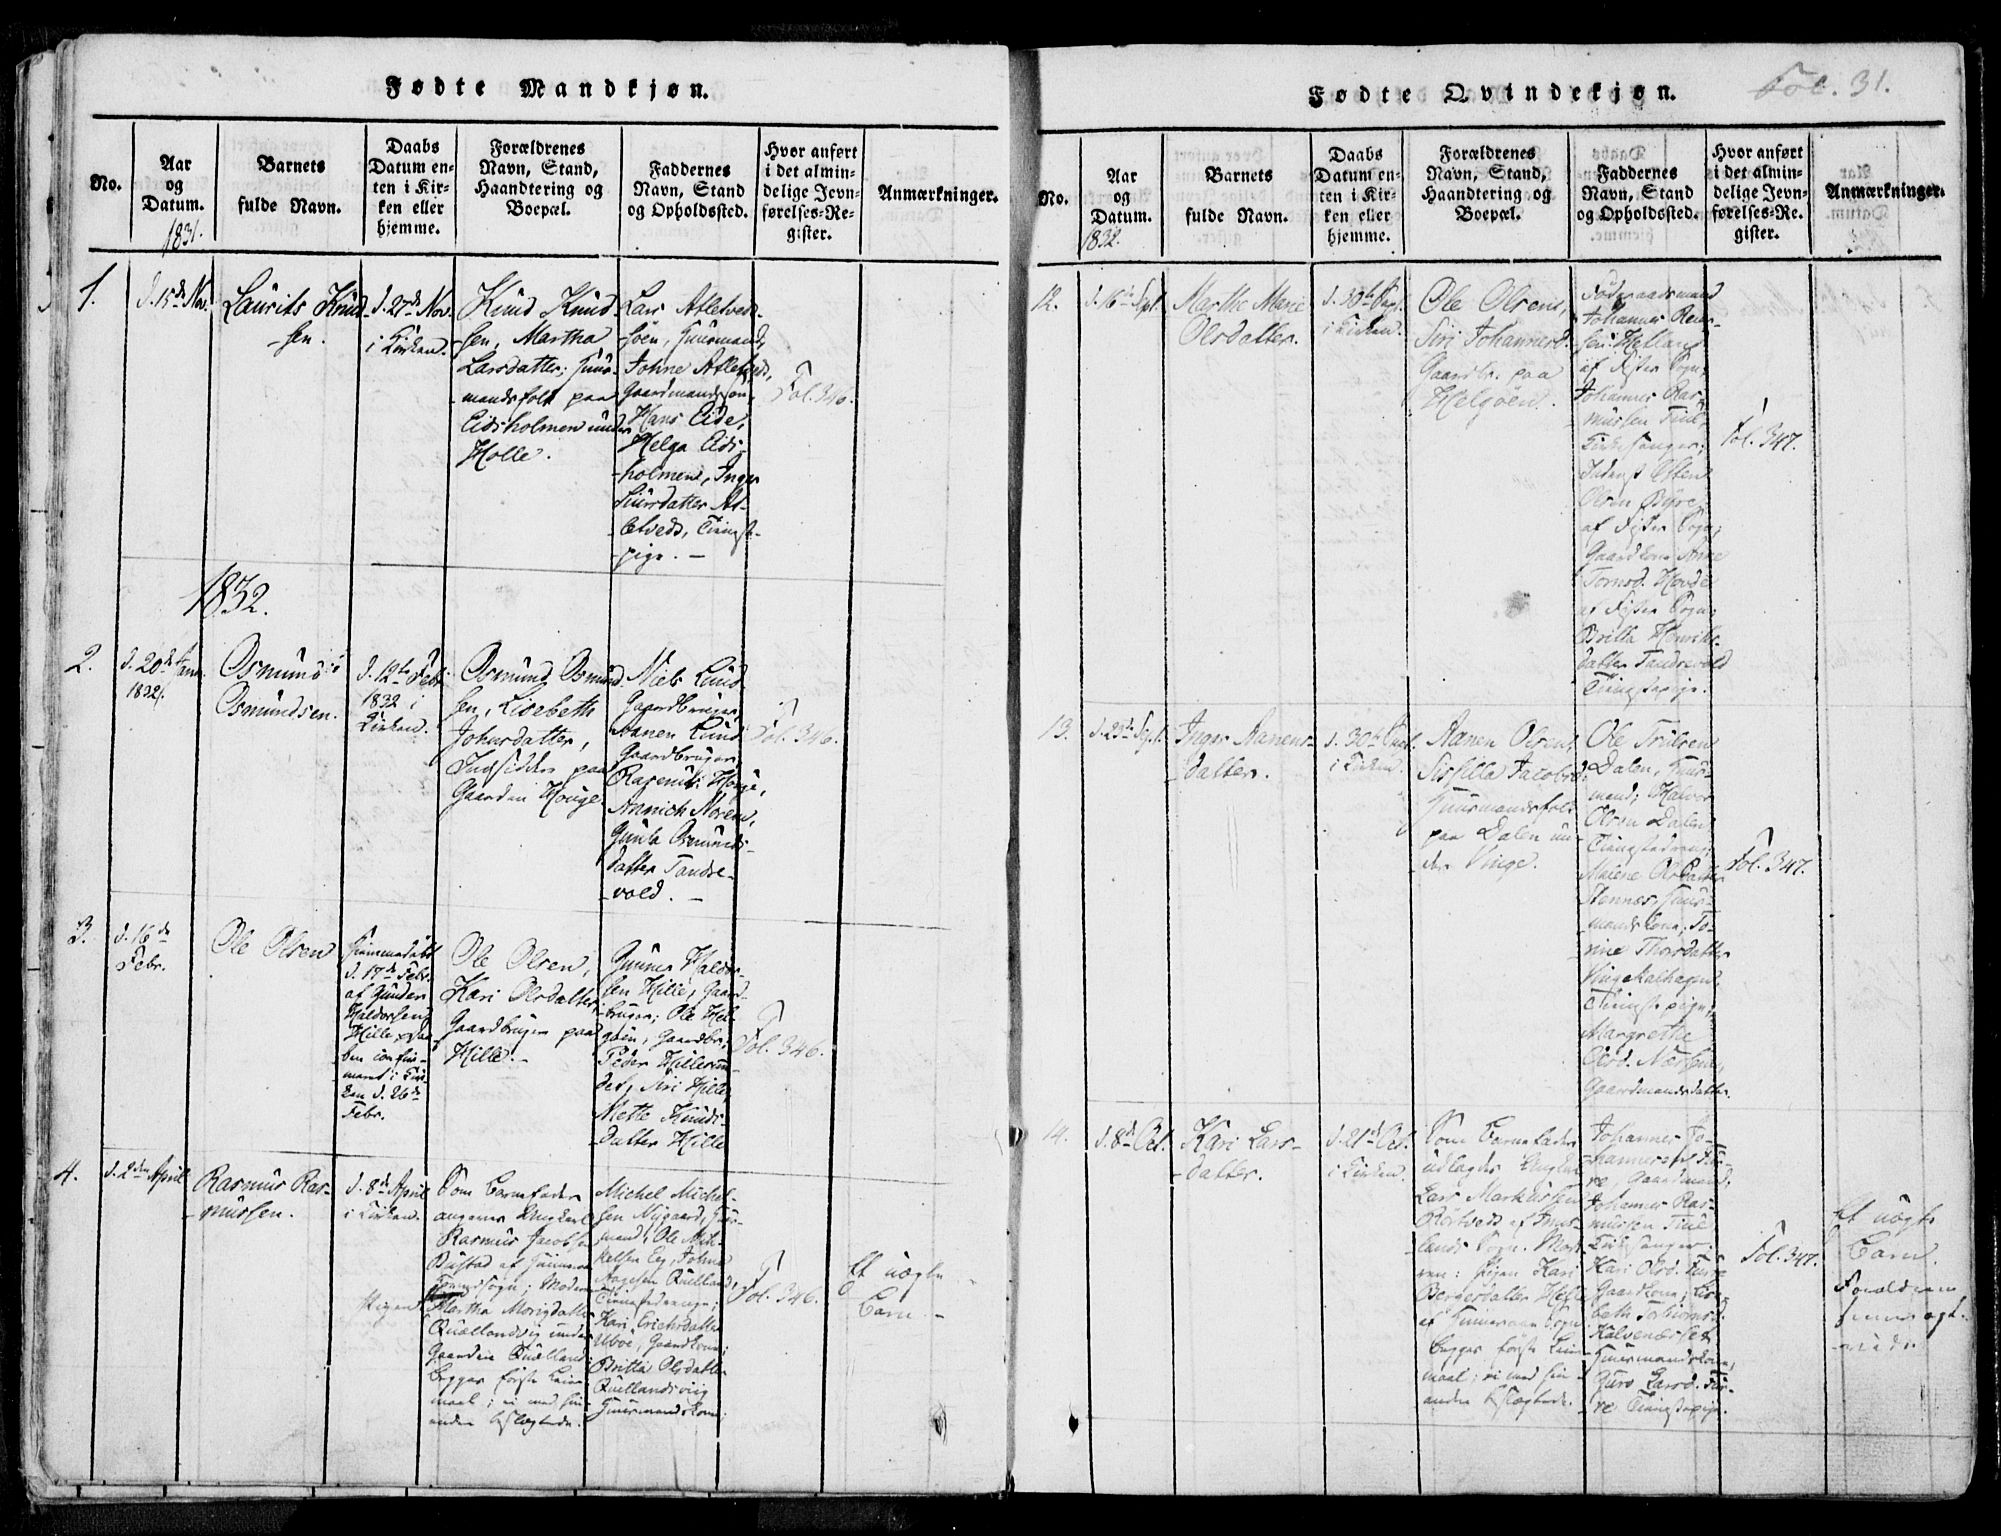 Fødte Mandkjøn.
No.
Aar
og
Datum.
1831.
Barnets
fulde Navn.
Daabs
Datum en-
ten i Kir-
ken eller
hjemme.
Forældrenes
Navn, Stand,
Haandtering og
Boepæl.
Faddernes
Navn, Stand
og Opholdssted.
Hvor anført
i det almin-
delige Jevn-
førelses-Re-
gister.
Anmærkninger.
1.
d. 15de Nov.
Laurits Knud-
-sen.
d. 27de Nov.
i Kirken.
Knud Knud-
sen, Martha
Larsdatter; Huus-
mandsfolk paa
Eidsholmen under
Holle.
Lars Atletved-
Huusmand,
Johne Atletveds,
Gaardmandssøn
Hans Eide,
Helga Eids-
-holmene, Inger
Siursdatter At-
letveds, Tienst-
-pige. -
Fol. 346.
1832.
2.
d. 20de Janr.
1832.
Osmund
Osmundsen.
d. 12te Febr.
1832 i
Kirken.
Osmund Osmund-
sen, Lisebeth
Johnsdatter,
Indsidder paa
Gaarden Houge.
Niels Lund
Gaardbruger,
Aanen Lund
Gaardbruger
Houge,
Annich Noreme,
Gunla Osmunds-
datter Tandre-
-vold. -
Fol. 346.
3.
d. 16de
Febr.
Ole Olsen
Hiemmedøbt
d. 17de Febr.
af Gunder
Haldorsen
Hille,
ben confir-
meret i Kir-
ken d. 26de
Febr.
Ole Olsen,
Kari Olsdatter,
Gaardbruger paa
Hille. -
Gunner Haldor-
sen Hille, Gaard-
bruger; Ole Hel-
gøen, Gaardbr.
Peder Hillesun-
det, Siri Hille,
Mette Knuds-
datter Hille
Fol. 346.
4.
d. 2den April
Rasmus Ras-
-mussen.
d. 8de April
i Kirken.
Som Barnefader
angives Ungkarl
Rasmus Jacobsen
Bustad af
sogn; Moderen
Pigen
Martha
under
Gaarden Qvelland;
begges første Leier-
maal; ei med hin-
anden beslægtede.
Michel Michel-
sen Nygaard, Huus-
mand, Ole Mik-
kelsen Eeg, Johne
Aagesen Qvelland,
Tienestedrenge;
Kari Erichsdatter
Uboe, Gaardkone;
Britta Olsdatter
Qvellandsviig
Huusmandskone.
Fol. 346.
Et uægte
Barn. -
Fødte Qvindekjøn.
Fol. 31.
No.
Aar
og
Datum.
1832.
Barnets
fulde Navn.
Daabs
Datum en-
ten i Kir-
ken eller
hjemme.
Forældrenes
Navn, Stand,
Haandtering og
Boepæl.
Faddernes
Navn, Stand
og Opholdssted.
Hvor anført
i det almin-
delige Jevn-
førelses-Re-
gister.
Anmærkninger.
12.
d. 16de Sept.
Marthe Marie
Olsdatter.
d. 30te Sept.
i Kirken.
Ole Olsen,
Siri Johannesd.
Gaardbr. paa
Helgøen.
Føderaadsmand
Johannes Reier-
sen Helland
af Fister Sogn;
Johannes Ras-
mussen Tiul,
Kirkesanger;
Olsen Byre
af Fister Sogn;
Gaardkone Anne
Hovde
af Fister Sogn;
Britta Henriks-
datter Tandrevold
Tienstepige.
Fol. 347.
13.
d. 23de Sept.
Inger Aanens-
-datter.
d. 30te Sept.
i Kirken.
Aanen Olsen,
Sissilla Jacobsd.
Huusmandsfolk
paa Dalen un-
der Vinge.
Ole Trulsen
Dalen, Huus-
mand; Halvor
Olsen Dalen
Tienstedreng;
Malene Olsdatter
Stennes, Huus-
-mandskone; To-
rine Thorsdatter
Tienstepige;
Margrethe
Olsd.
Gaardmandsdatter.
Fol. 347.
14.
d. 8de Oct.
Kari Lars-
-datter.
d. 21de Oct.
i Kirken.
Som Barnefader
udlagdes Ungkarl
Lars Markussen
Røstveds af
-lands Sogn. Mode-
ren: Pigen Kari
Bergesdatter Hille
af Sogn
begges første Leier-
maal; ei med hin-
anden beslægtede.
Johannes Jo-
hannessen Fur-
re, Gaardmand.
Johannes Ras-
mussen Tiul
Kirkesanger.
Kari Olsd. Furre
Gaardkone; Lis-
beth
Huusmandskone,
Guro Larsd. Fur-
-re Tienstepige.
Fol. 347.
Et uægte
Barn.
Forældrene